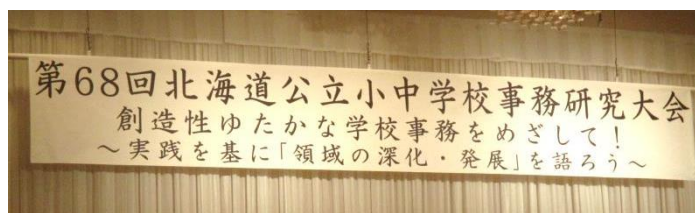 第68回北海道公立小中学校事務研究大会
創造性ゆたかな学校事務をめざして!
～実践を基に「領域の深化・発展」を語ろう～